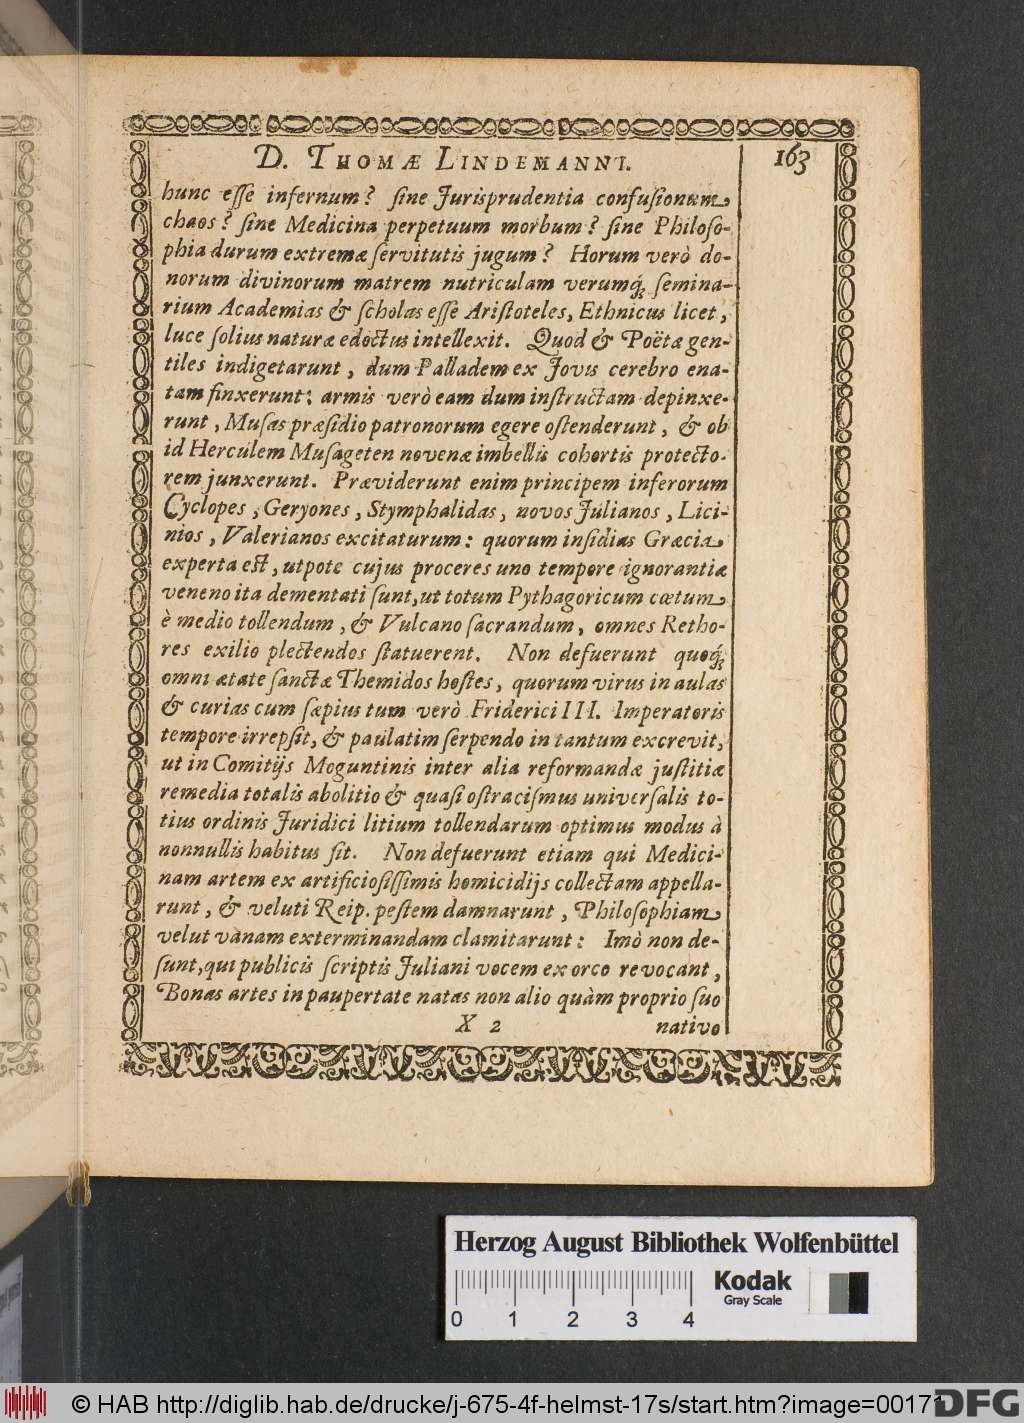 D. THOMÆ LINDEMANNI. 163
hunc eſſe infernum? ſine Jurisprudentia confuſionem
chaos? ſine Medicina perpetuum morbum? ſine Philoſo-
phia durum extremæ ſervitutis jugum? Horum verò do-
norum divinorum matrem nutriculam verumq́; ſemina-
rium Academias & ſcholas eſſe Ariſtoteles, Ethnicus licet,
luce ſolius naturæ edoctus intellexit. Quod & Poëtæ gen-
tiles indigetarunt, dum Palladem ex Jovis cerebro ena-
tam finxerunt: armis verò eam dum inſtructam depinxe-
runt, Muſas præſidio patronorum egere oſtenderunt, & ob
id Herculem Muſageten novenæ imbellis cohortis protecto-
rem junxerunt. Præviderunt enim principem inferorum
Cyclopes, Geryones, Stymphalidas, novos Julianos, Lici-
nios, Valerianos excitaturum: quorum inſidias Græcia
experta eſt, utpote cujus proceres uno tempore ignorantiæ
veneno ita dementati ſunt, ut totum Pythagoricum cœtum
è medio tollendum, & Vulcano ſacrandum, omnes Retho-
res exilio plectendos ſtatuerent. Non defuerunt quoq́;
omni ætate ſanctæ Themidos hoſtes, quorum virus in aulas
& curias cum ſæpius tum verò Friderici III. Imperatoris
tempore irrepſit, & paulatim ſerpendo in tantum excrevit,
ut in Comitijs Moguntinis inter alia reformandæ juſtitiæ
remedia totalis abolitio & quaſi oſtraciſmus univerſalis to-
tius ordinis Juridici litium tollendarum optimus modus à
nonnullis habitus ſit. Non defuerunt etiam qui Medici-
nam artem ex artificioſiſſimis homicidijs collectam appella-
runt, & veluti Reip. peſtem damnarunt, Philoſophiam
velut vanam exterminandam clamitarunt: Imò non de-
ſunt, qui publicis ſcriptis Juliani vocem ex orco revocant,
Bonas artes in paupertate natas non alio quàm proprio ſuo
X 2 nativo
Herzog August Bibliothek Wolfenbüttel
Kodak
Gray Scale
0 1 2 3 4
© HAB http://diglib.hab.de/drucke/j-675-4f-helmst-17s/start.htm?image=00171
DFG